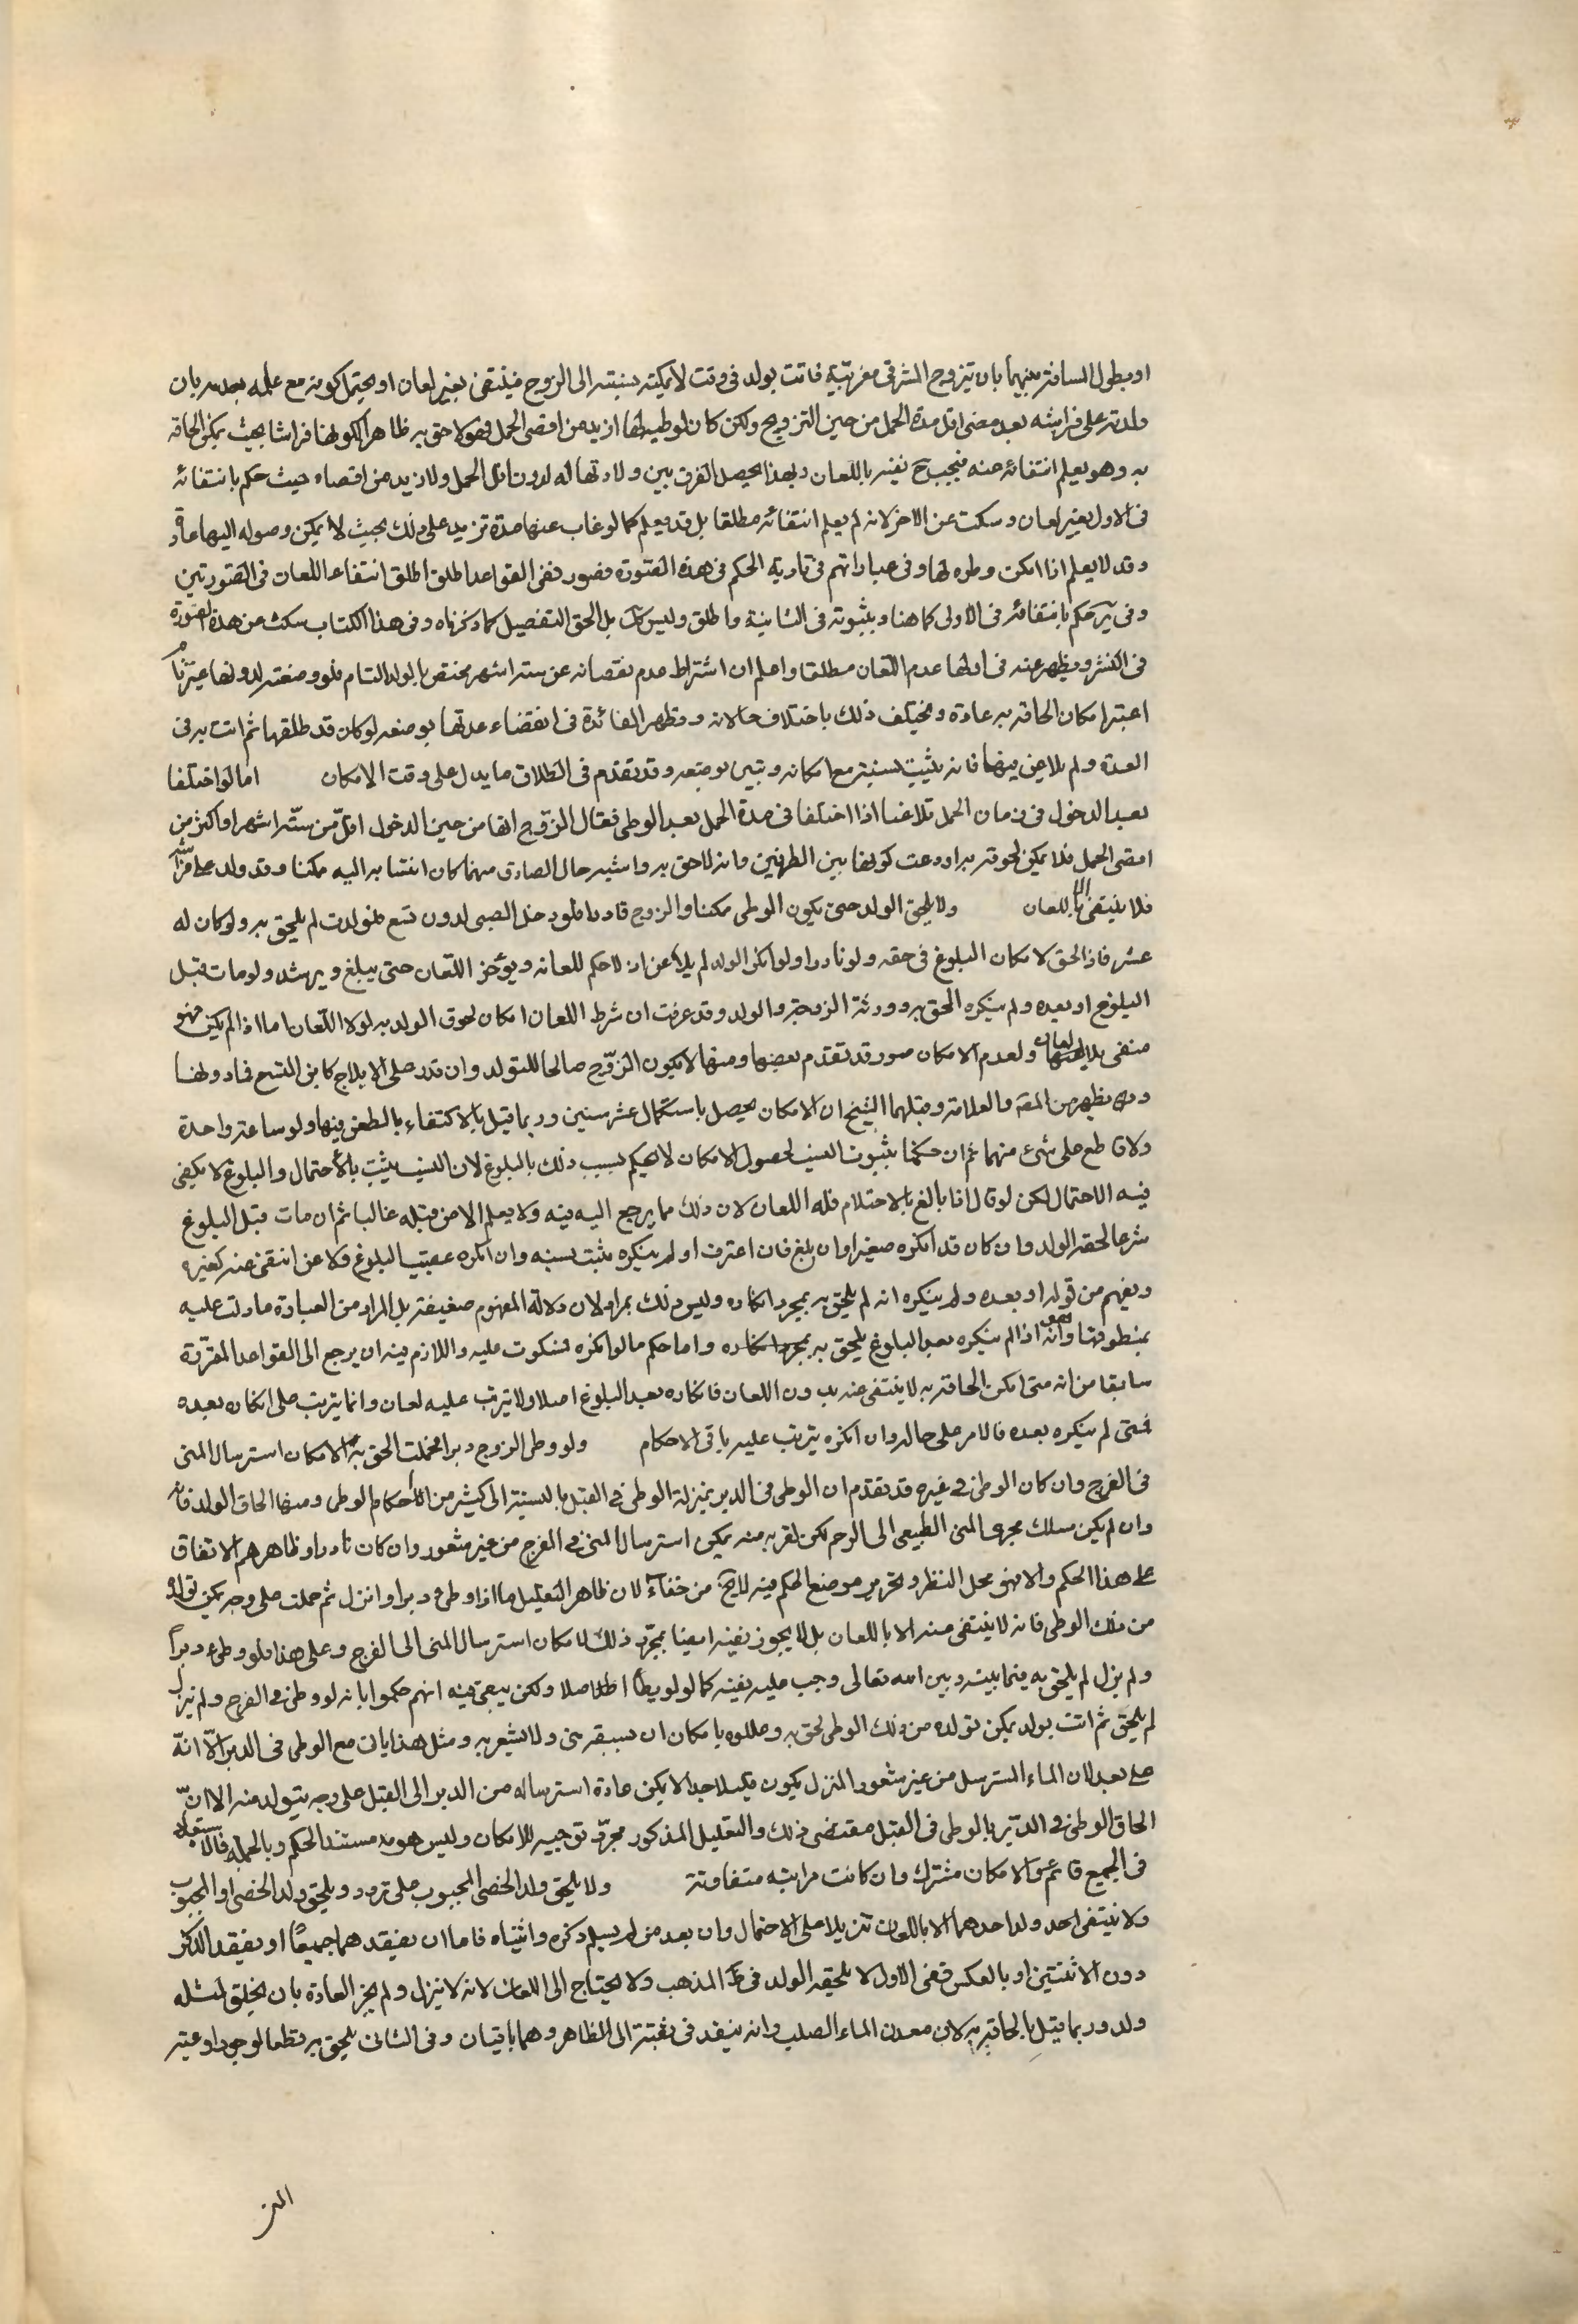 او بطول المسافة بينهما بان تيزوج المشرقى مغربيّة فاتت بولد فى وقت لا يمكن نسبته الى الزوج فينتفى بغير لعان او يحتمل كونه مع علمه بعدمه بان
ولدته على فراشه بعد مضى اقل مدة الحمل من حين التزويج ولكن كان لوطيه لها ازيد من اقصى الحمل فهو لاحق به ظاهرا لكونها فراشا بحيث يمكن الحاقه
به وهو يعلم انتفائه عنه فيجب ح نفيه باللعان وبهذا يحصل الفرق بين ولادتها له لدون اقل الحمل ولازيد من اقصاه حيث حكم بانتفائه
فى الاول بغير لعان وسكت عن الاخر لانه لم يعلم انتفائه مطلقا بل قد يعلم كما لو غاب عنها مدة تزيد على ذلك بحيث لا يمكن وصوله اليها عادة
وقد لا يعلم اذا امكن وطؤه لها وفى عباراتهم فى تادية الحكم فى هذه الصورة قصور ففى القواعد اطلق انتفاء اللعان فى الصورتين
وفى ير حكم بانتفائه فى الاولى كما هنا وبثبوته فى الثانية واطلق وليس كك بل الحق التفصيل كما ذكرناه وفى هذا الكتاب سكت عن هذه الصورة
فى اكثر ويظهر عنه فى عدم اللعان مطلقا واعلم ان اشتراط عدم نقصانه عن ستة اشهر مختص بالولد التام فلو وضعته لدونها غير تام
اعتبر امكان الحاقه به عادة ويختلف ذلك باختلاف حالاته وتظهر الفائدة فى انقضاء عدتها بوضعه لو كان قد طلقها ثم اتت به فى
العدة ولم يلاعن فانه يثبت نسبته مع امكانه وتبين بوضعه وقد تقدم فى الطلاق ما يدل على وقت الامكان اما لو اختلفا
بعد الدخول فى زمان الحمل تلاعنا اذا اختلفا فى مدة الحمل بعد الوطى فقال الزوج انها من حين الدخول اقل من ستّة اشهر او اكثر من
اقصى الحمل فلا يمكن لحوقه به وادعت كونها بين الطرفين وانه لاحق به واشتبه حال الصادق منهما كان انتسابه اليه ممكنا وقد ولد على فراشه
فلا ينتفى الا باللعان ولا يلحق الولد حتى يكون الوطى ممكنا والزوج قادرا فلو دخل الصبى لدون تسع فولدت لم يلحق به ولو كان له
عشر فاذا لحق لامكان البلوغ فى حقه ولو نادرا ولو انكر الولد لم يلاعن اذ لا حكم للعانه ويؤخر اللعان حتى يبلغ ويرشد ولو مات قبل
البلوغ او بعده ولم ينكره الحق به وورثته الزوجة والولد وقد عرفت ان شرط اللعان امكان لحوق الولد به لولا اللعان اما اذا لم يكن فهو
منفى بلا لعان ولعدم الامكان صور قد تقدم بعضها ومنها لا يكون الزوج صالحا للتولد وان قدر على الايلاج كابن التسع فما دونها
و يظهر من المصنف والعلامة وقبلهما الشيخ ان الامكان يحصل باستكمال عشر سنين وربما قيل بالاكتفاء بالطعن فيها ولو ساعة واحدة
ولا قاطع على شئ منهما ثم ان حكمنا بثبوت النسب لحصول الامكان لا يحكم بسبب ذلك بالبلوغ لان النسب يثبت بالاحتمال والبلوغ لا يكفى
فيه الاحتمال لكن لو قال انا بالغ بالاحتلام فله اللعان لان ذلك مما يرجع اليه فيه ولا يعلم الا من قبله غالبا ثم ان مات قبل البلوغ
شرعا لحقه الولد وان كان قد انكره صغيرا وان بلغ فان اعترف او لم ينكره ثبت نسبه وان انكره عقيب البلوغ ولاعن انتفى عنه كغيره
ويفهم من قوله او بعده ولم ينكره انه لم يلحق به بمجرد انكاره وليس ذلك بمراد لان دلالة المفهوم ضعيفة بل المراد من العبارة ما دلت عليه
بمنطوقها وهو انه اذا لم ينكره بعد البلوغ يلحق به بمجرد انكاره واما حكم ما لو انكره فسكوت عليه واللازم فيه ان يرجع الى القواعد المقررة
سابقا من انه متى امكن الحاقه به لا ينتفى عنه بدون اللعان فانكاره بعد البلوغ اصلا ولا يترتب عليه لعان وانما يترتب على انكاره بعده
فمتى لم ينكره بعده فالامر على حاله وان انكره يترتب عليه باقى الاحكام ولو وطى الزوج دبرا فحملت الحق به لامكان استرسال المنى
فى الفرج وان كان الوطى فى غيره قد تقدم ان الوطى فى الدبر بمنزلة الوطى فى القبل بالنسبة الى كثير من الاحكام الوطى ومنها الحاق الولد فانه
وان لم يكن مسلك مجرى المنى الطبيعى الى الرحم لكن لقربه منه يمكن استرسال المنى فى الفرج من غير شعور وان كان نادرا وظاهرهم الاتفاق
على هذا الحكم والا فهو محل النظر وتحرير موضع الحكم فيه لا يخ من خفاء لان ظاهر التعليل ما اذا وطى دبرا وانزل ثم حملت على وجه يمكن تولده
من ذلك الوطى فانه لا ينتفى منه الا باللعان بل لا يجوز نفيه ايضا بمجرد ذلك لامكان استرسال المنى الى الفرج وعلى هذا فلو وطئ دبراً
ولم ينزل لم يلحق به فيما بينه وبين الله تعالى وجب عليه نفيه كما لو لم يطأ اصلا ولكن يبقى فيه انهم حكموا بانه لو وطى فى الفرج ولم ينزل
لم يلحق ثم اتت بولد يمكن تولده من ذلك الوطى لحق به وعللوه بامكان ان يسبقه منى ولا يشعر به ومثل هذا يات مع الوطى فى الدبر الا انه
على بعد لان الماء المسترسل من غير شعور المنزل يكون قليلا جدا لا يمكن عادة استرساله من الدبر الى القبل على وجه يتولد منه الا ان
الحاق الوطى فى الدبر بالوطى فى القبل مقتضى ذلك والتعليل المذكور مجرد توجيه للامكان وليس هو مستند الحكم وبالجملة فالاستبعاد
فى الجميع قائم والامكان مشترك وان كانت مراتبه متفاوتة ولا يلحق ولد الخصى المجبوب على تردد ويلحق ولد الخصى او المجبوب
ولا ينتفى احد ولد احدهما الا باللعان تنزيلا على الاحتمال وان بعد من لم يسلم ذكره وانثياه فاما ان يفقدهما جميعًا او يفقد الذكر
دون الانثيين او بالعكس ففى الاول لا يلحقه الولد فى ظ المذهب ولا يحتاج الى اللعان لانه لا ينزل ولم يجز العادة بان يخلق لمثله
ولد وربما قيل بالحاقه به لان معدن الماء الصلب وانه ينفذ فى ثقبة الى الظاهر وهما باقيان وفى الثانى يلحق به قطعا لوجود اوعية